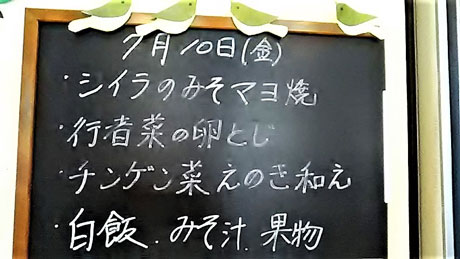 7月10日(金)
・シイラのみそマヨ焼
・行者菜の卵とじ
・チンゲン菜えのき和え
・白飯.みそ汁.果物